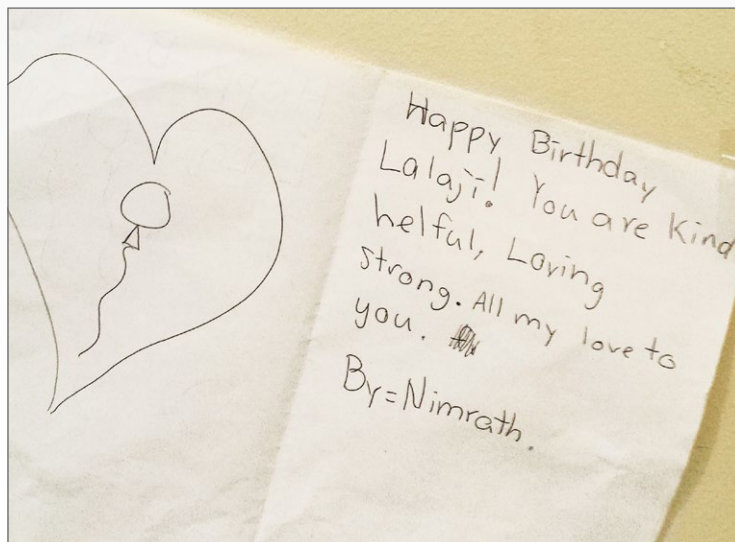 Happy Birthday
Lalaji! You are Kind
helful, Loving
strong. All my love to
you.
By=Nimrath.